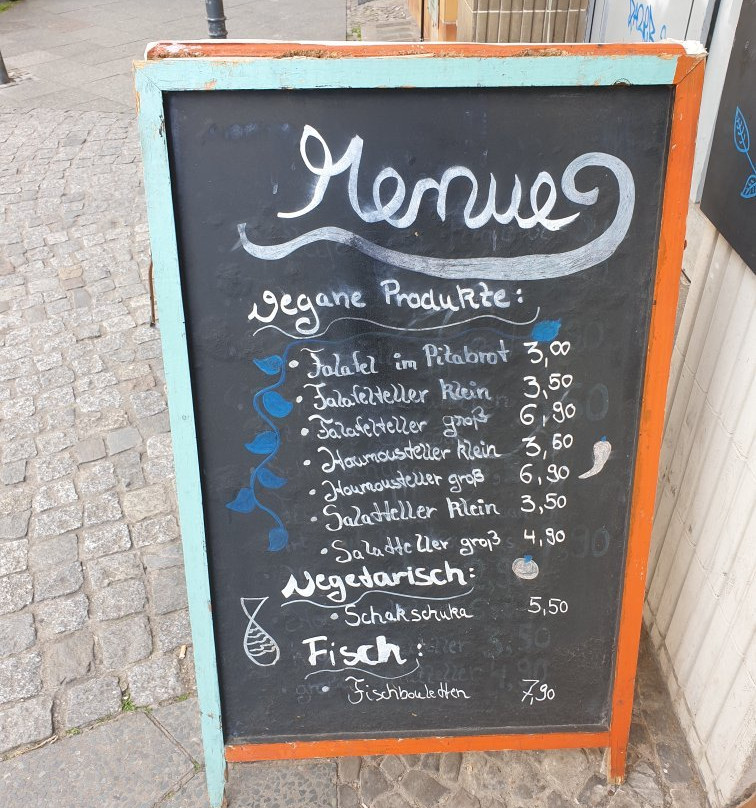 Menue
Vegane Produkte:
• Falafel im Pitabrot 3,00
• Falafelteller klein 3,50
• Falafelteller groß 6,90
• Houmousteller klein 3,50
• Houmousteller groß 6,90
• Salatteller klein 3,50
• Salatteller groß 4,90
Vegetarisch:
• Schakschuka 5,50
Fisch:
• Fischbouletten 7,90